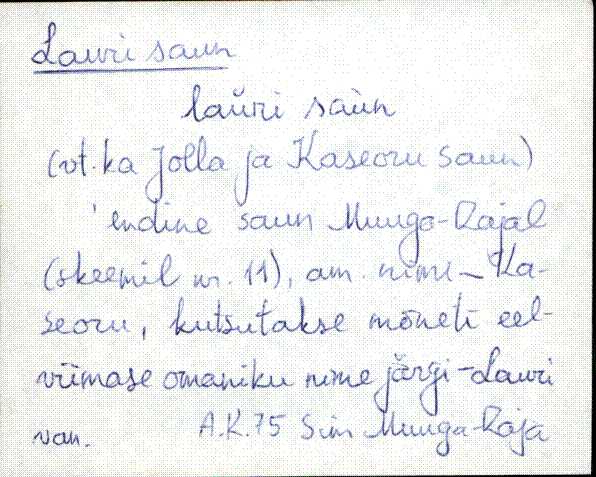 Lauri saun
laŭri saùn
(vt. ka Jolla ja Kaseoru saun)
'endine saun Muuga-Rajal
(skeemil nr. 11), am. nimi - Ka-
seoru, kutsutakse mõneti eel-
viimase omaniku nime järgi - Lauri
van. A.K. 75 Sim Muuga-Raja